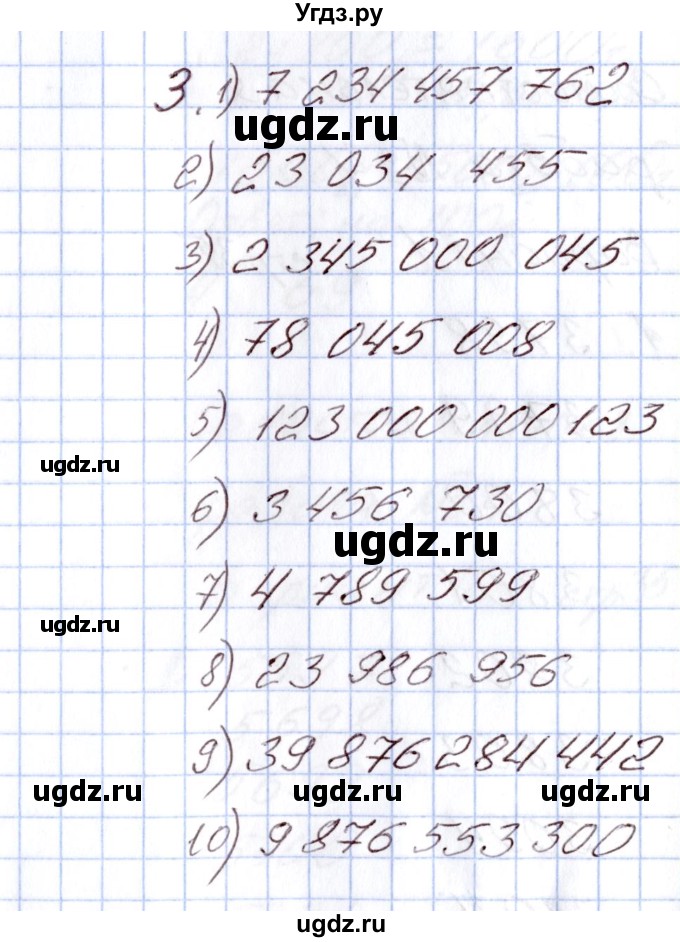 Угдз.ру
3. 1) 7 234 457 762
ugdz.ru
2) 23 034 455
3) 2 345 000 045
4) 78 045 008
5) 123 000 000 123
ugdz.ru
6) 3 456 730
ugdz.ru
7) 4 789 599
ugdz.ru
8) 23 986 956
9) 39 876 284 442
ugdz.ru ugdz.ru ugdz.ru
10) 9 876 553 300
ugdz.ru